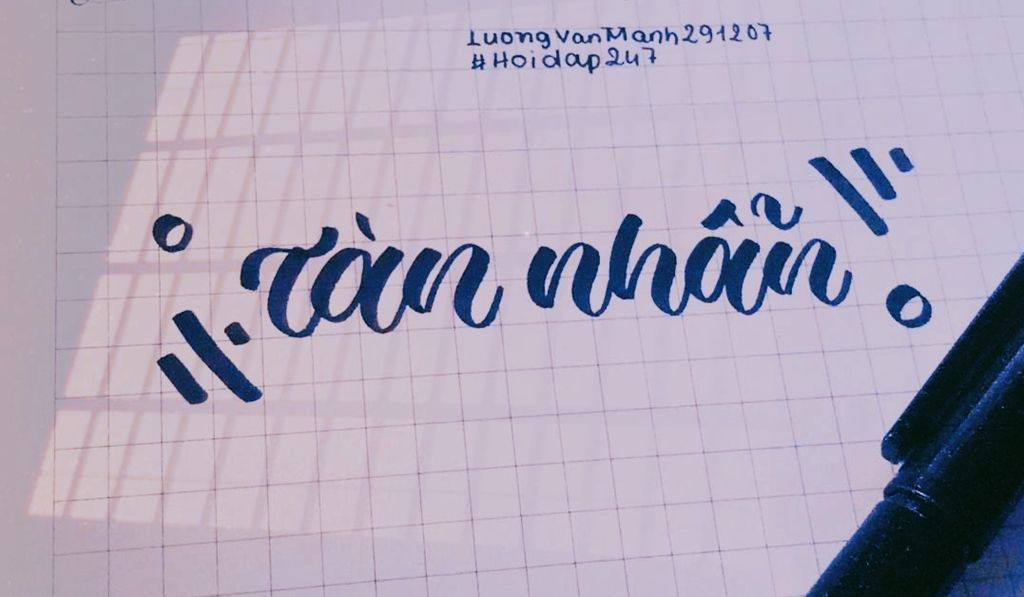 LuongVanManh291207
#Hoidap247
Tàn nhẫn